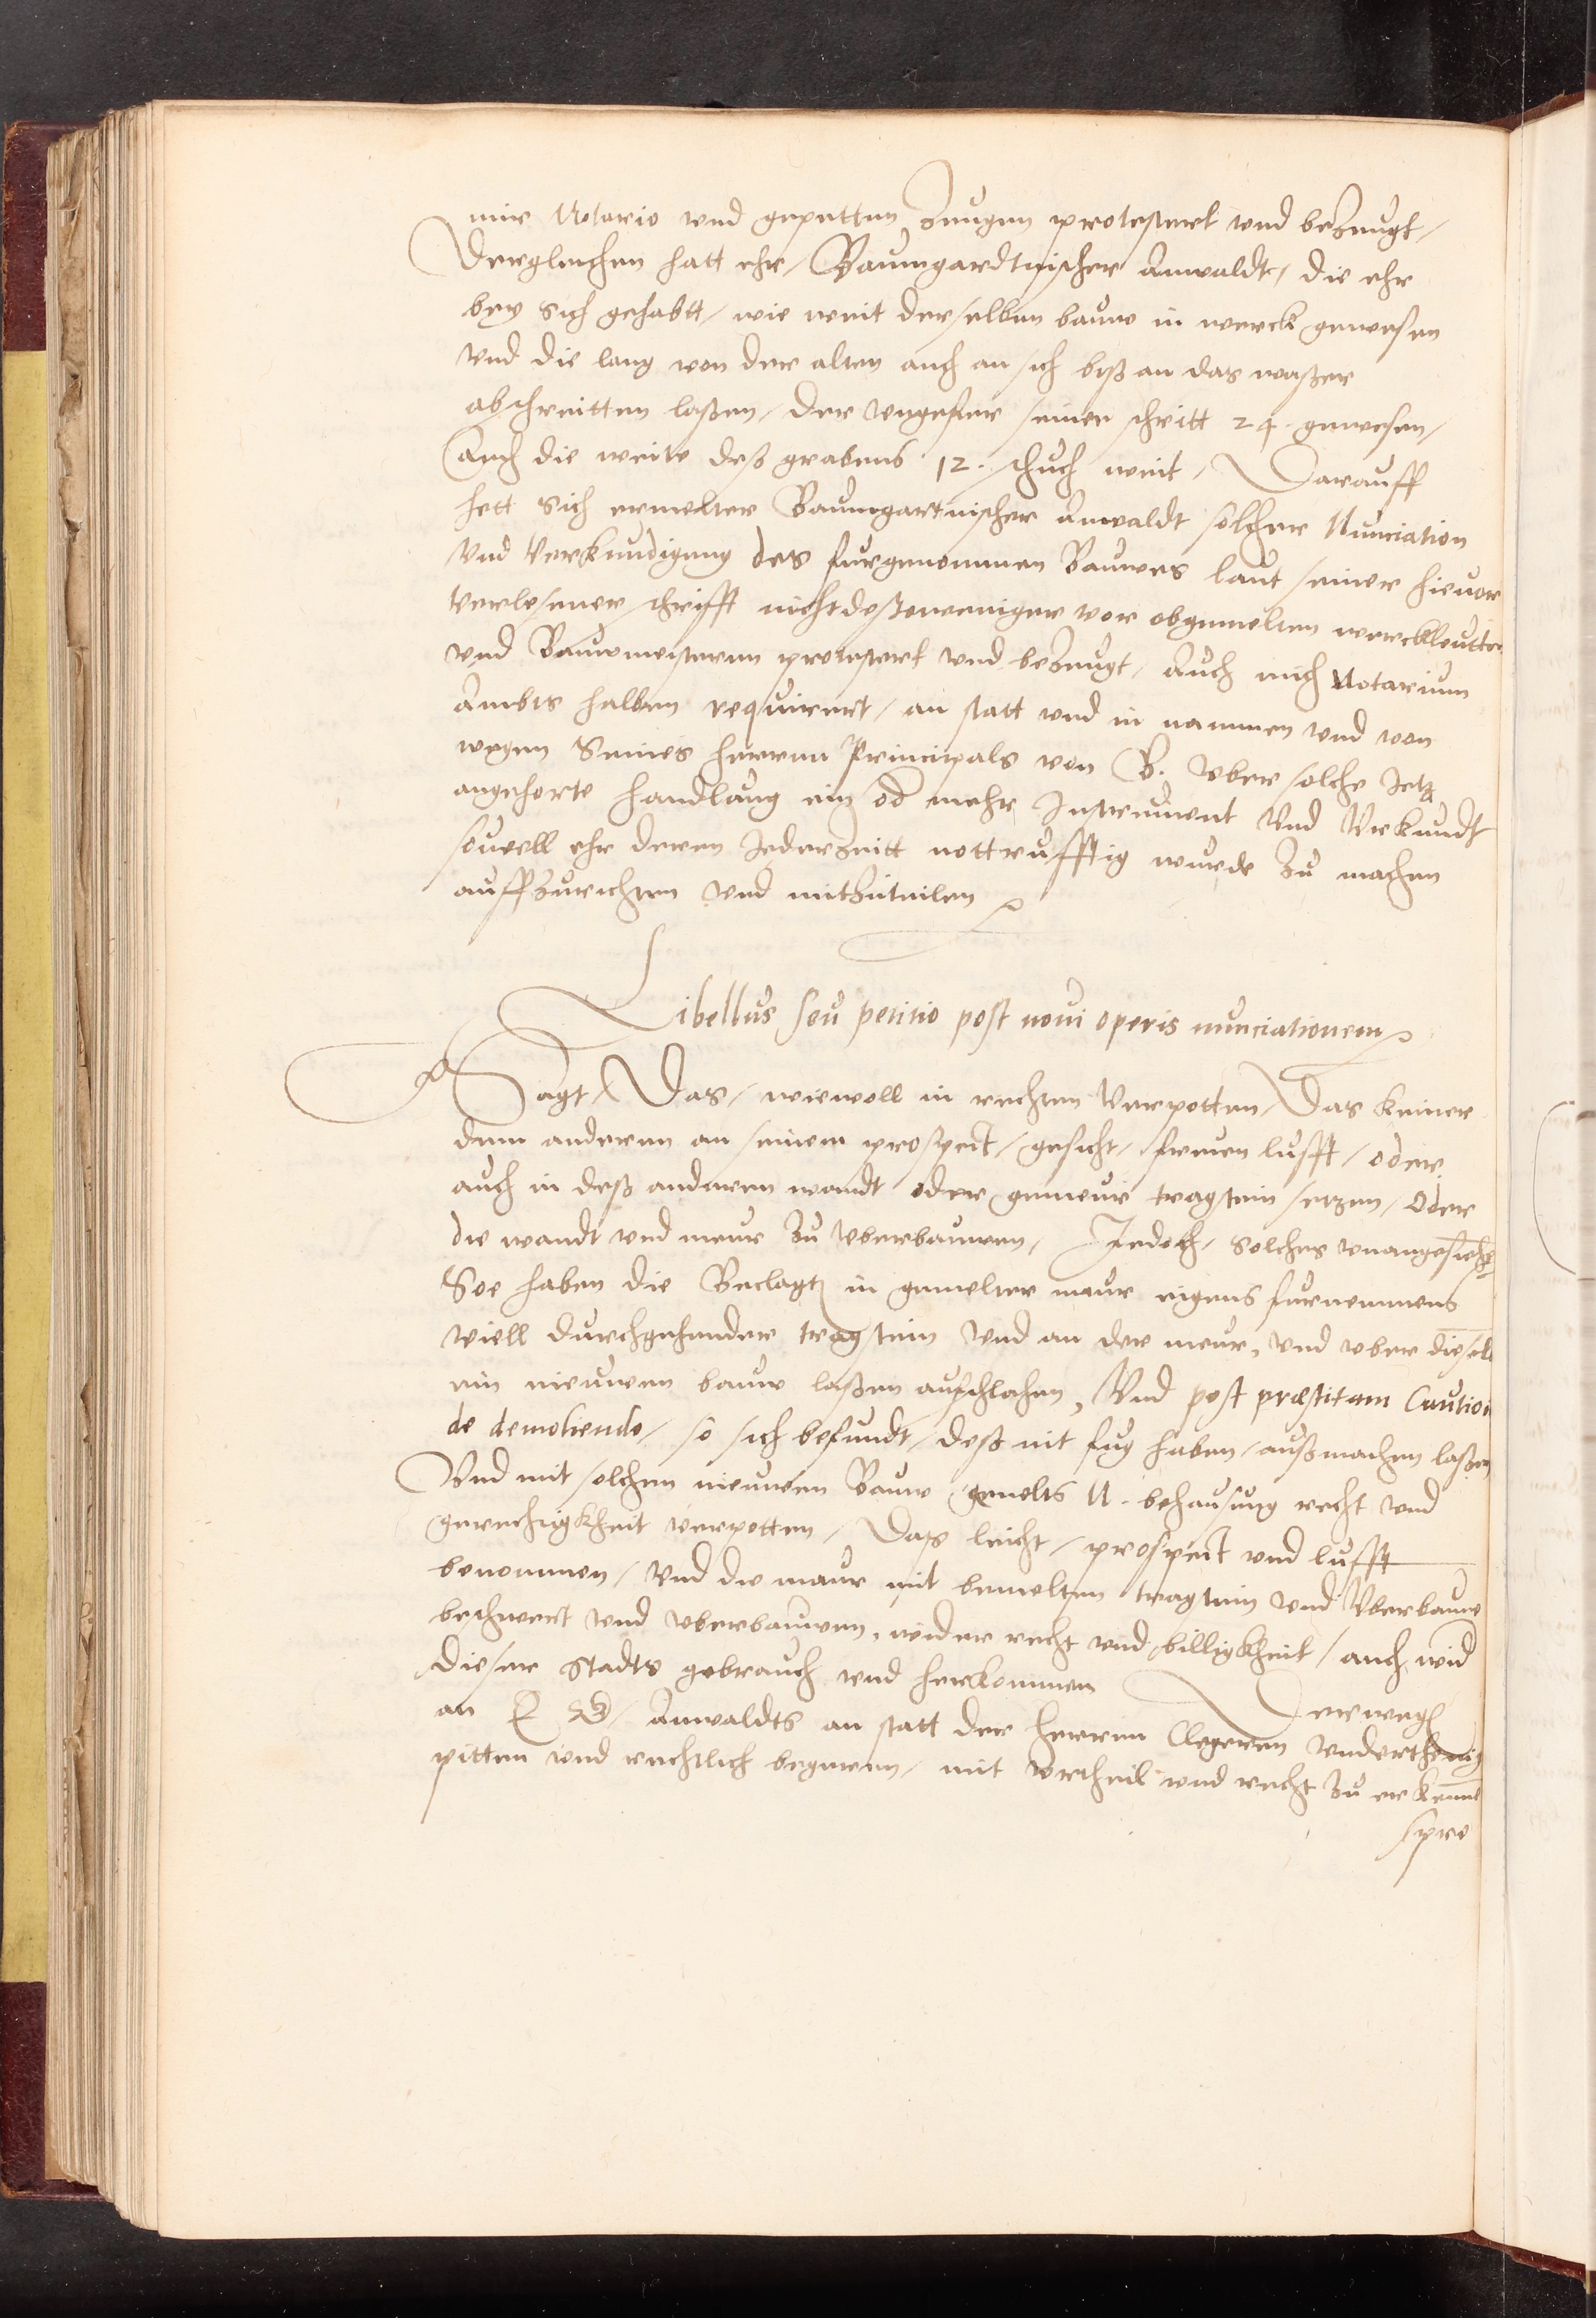 mir Notario vnd gepetten Zeugen protestert vnd bezeugt/
Dergleichen hatt ehr/ Baumgardtnischer Anwaldt/ die ehr
bey sich gehabtt/ wie weit derselben bauw in werck gewesen
vnd die lang von der alten auch an sich biß an das waßer
abschreitten laßen/ der vngefer seiner schritt 24 gewesen/
Auch die weite deß grabens 12. schuch weit/ Darauff
hett sich ermelter Baumgartnischer Anwaldt solcher Nunciation
vnd Verkundigung des furgenommen Bauwes laut seiner hieuor
verlesener schrifft nichtdestoweniger vor obgemelten werckleutten
vnd Bauwmeisteren protestert vnd bezeugt/ Auch mich Notarium
Ambts halben requirert/ an statt vnd in nammen vnd von
wegen Seines herren Principals von B. vber solche Jetz
angehorte handlung ein od mehr Instrument vnd Vrkundt
souill ehr deren Jederzeitt nottrufftig wurde zu machen
auffzurichten vnd mitzuteilen
Libellus seu petitio post noui operis nunciationem
Sagt/ Das/ wiewoll in rechten Verpotten/ Das keiner
dem anderen an seinem prospect/ gesicht/ freien lufft/ oder
auch in deß anderen wandt oder gemeur tragstein setzen/ Oder
die wandt vnd meur zu vberbauwen/ Jedoch/ solches vnangesieht
Soe haben die Beclagt in gemelter maur eigens furnemmens
viell durchgehender tragstein vnd an der meur, vnd vber dieselb
ein nieuwen bauw laßen aufschlachen, Vnd post præstitam Caution
de demoliendo/ so sich befundt/ deß nit fug haben/ außmachen laßen
Vnd mit solchen nieuwen Bauw gemelts N. behausung recht vnd
gerechigkheit verpotten/ Daß leicht/ prospect vnd lufft
benommen/ vnd die maur mit bemelten tragstein vnd Vberbauw
beschwert vnd vberbauwen, wider recht vnd billigkheit/ auch wid
dieser Stadts gebrauch vnd herkommen Derweg
an E Anwaldts an statt der herren Clegeren vnderthenig
pitten vnd rechtlich begeren/ mit vrtheil vnd recht zu erkenne
spre